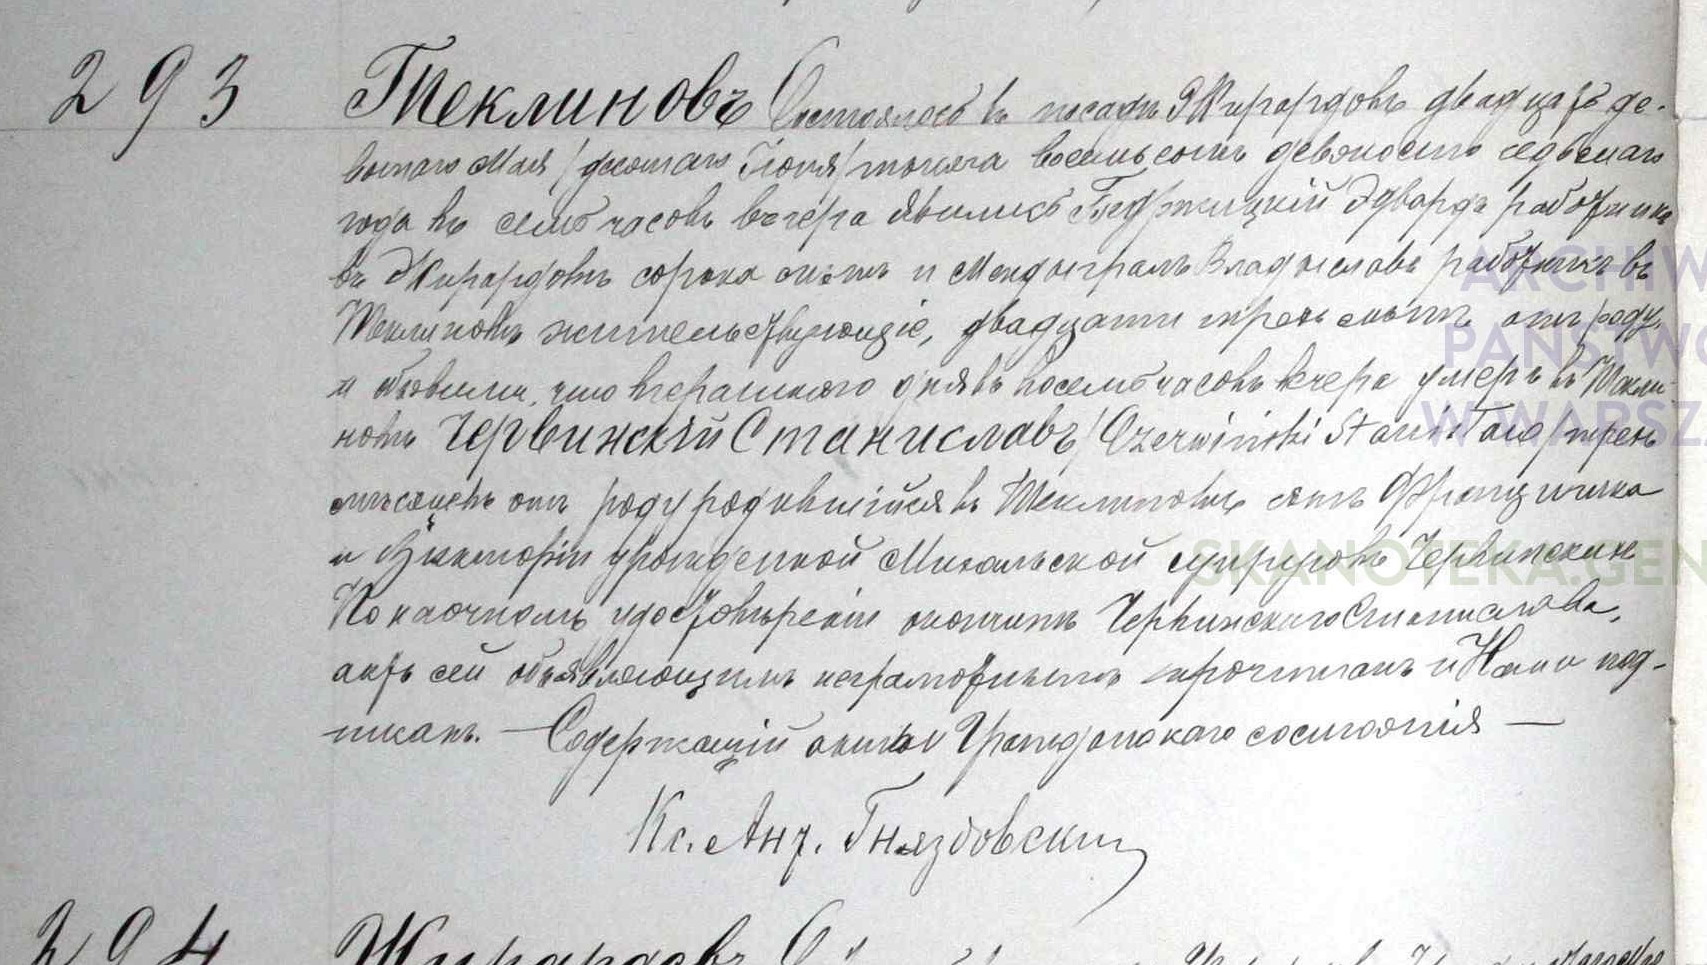 293 Теклиновъ Состоялось въ посадѣ Жирардовѣ двадцать де-
вятаго Мая /десятаго Іюня/ тысяча восемьсотъ девяносто седьмаго
года въ семь часовъ вечера Явились Бедржицкій Эдвардъ работникъ
въ Жирардовѣ сорока лѣтъ и Мендыгралъ Владыславъ работникъ въ
Теклиновѣ жительствующіе, двадцати трехъ лѣтъ отъ роду,
и объявили, что вчерашняго дня въ восемь часовъ вечера умеръ въ Текли-
новѣ Червинскій Станиславъ /Czerwiński Stanisław/ трехъ
мѣсяцевъ отъ роду родившійся въ Теклиновѣ сынъ Францишка
и Викторіи урожденной Михальской супруговъ Червинскихъ
По наочномъ удостовѣреніи о кончинѣ Червинскаго Станислава,
актъ сей объявляющимъ неграмотнымъ прочитанъ и Нами под-
писанъ. — Содержащій акты Гражданскаго состоянія —
Кс. Ант. Гняздовски
294 Жирардовъ
ARCHIW
PAŃSTWO
W WARSZA
SKANOTEKA.GEN